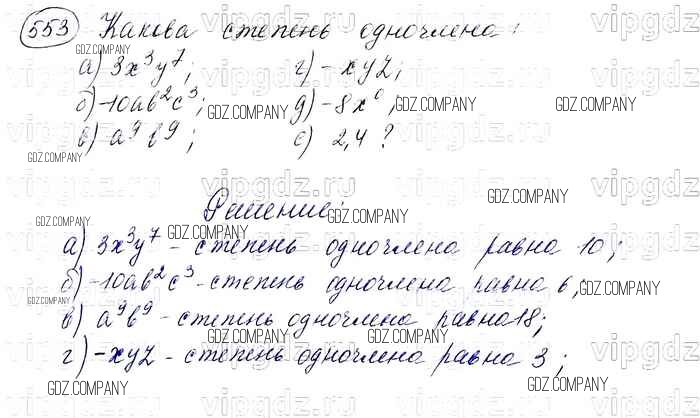 553 Какова степень одночлена:
а) 3x³y⁷; г) -xyz;
б) -10ab²c³; д) -8x⁰;
в) a⁹b⁹; е) 2,4?
Решение:
а) 3x³y⁷ - степень одночлена равна 10;
б) -10ab²c³ - степень одночлена равна 6;
в) a⁹b⁹ - степень одночлена равна 18;
г) -xyz - степень одночлена равна 3;